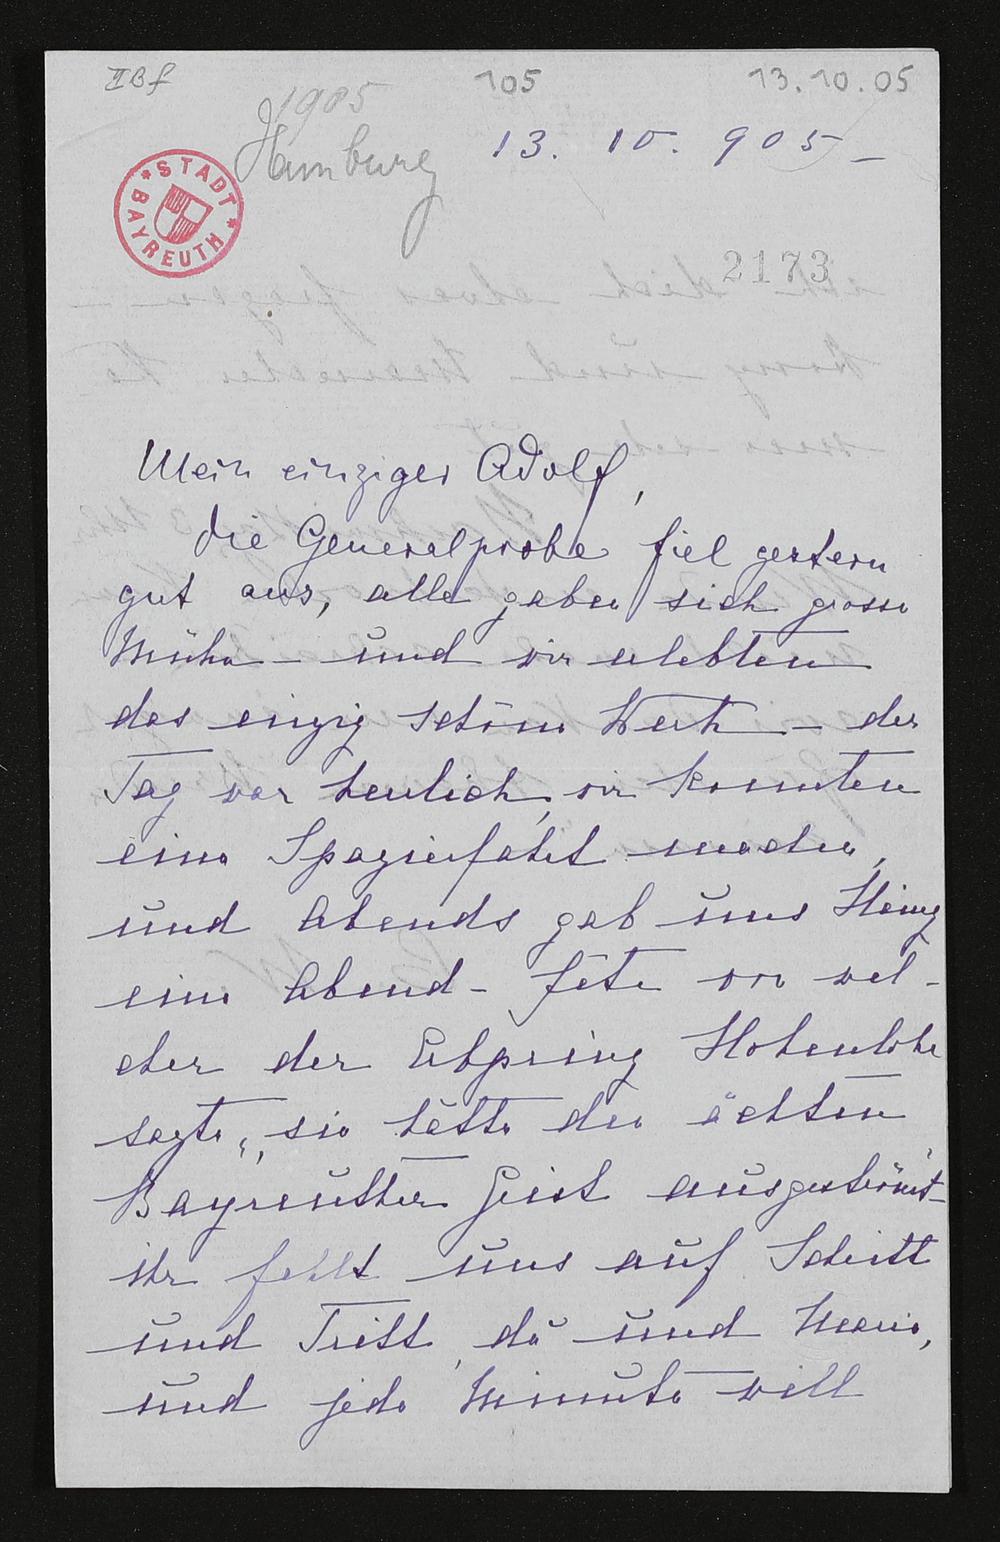 IIBf
105
13.10.05
1905
Hamburg
13. 10. 905 –
STADT BAYREUTH
2173
Mein einziger Adolf,
die Generalprobe fiel gestern
gut aus, alle gaben sich grosse
Mühe – und wir erlebten
das einzig schöne Werk – der
Tag war herrlich, wir konnten
eine Spazierfahrt machen,
und Abends gab uns
eine Abend-fête von wel-
cher der Erbprinz Hohenlohe
sagte, „sie hätte den ächten
Bayreuther Geist ausgeströmt" –
ihr fehlt uns auf Schritt
und Tritt, du und Maria,
und jede Minute will